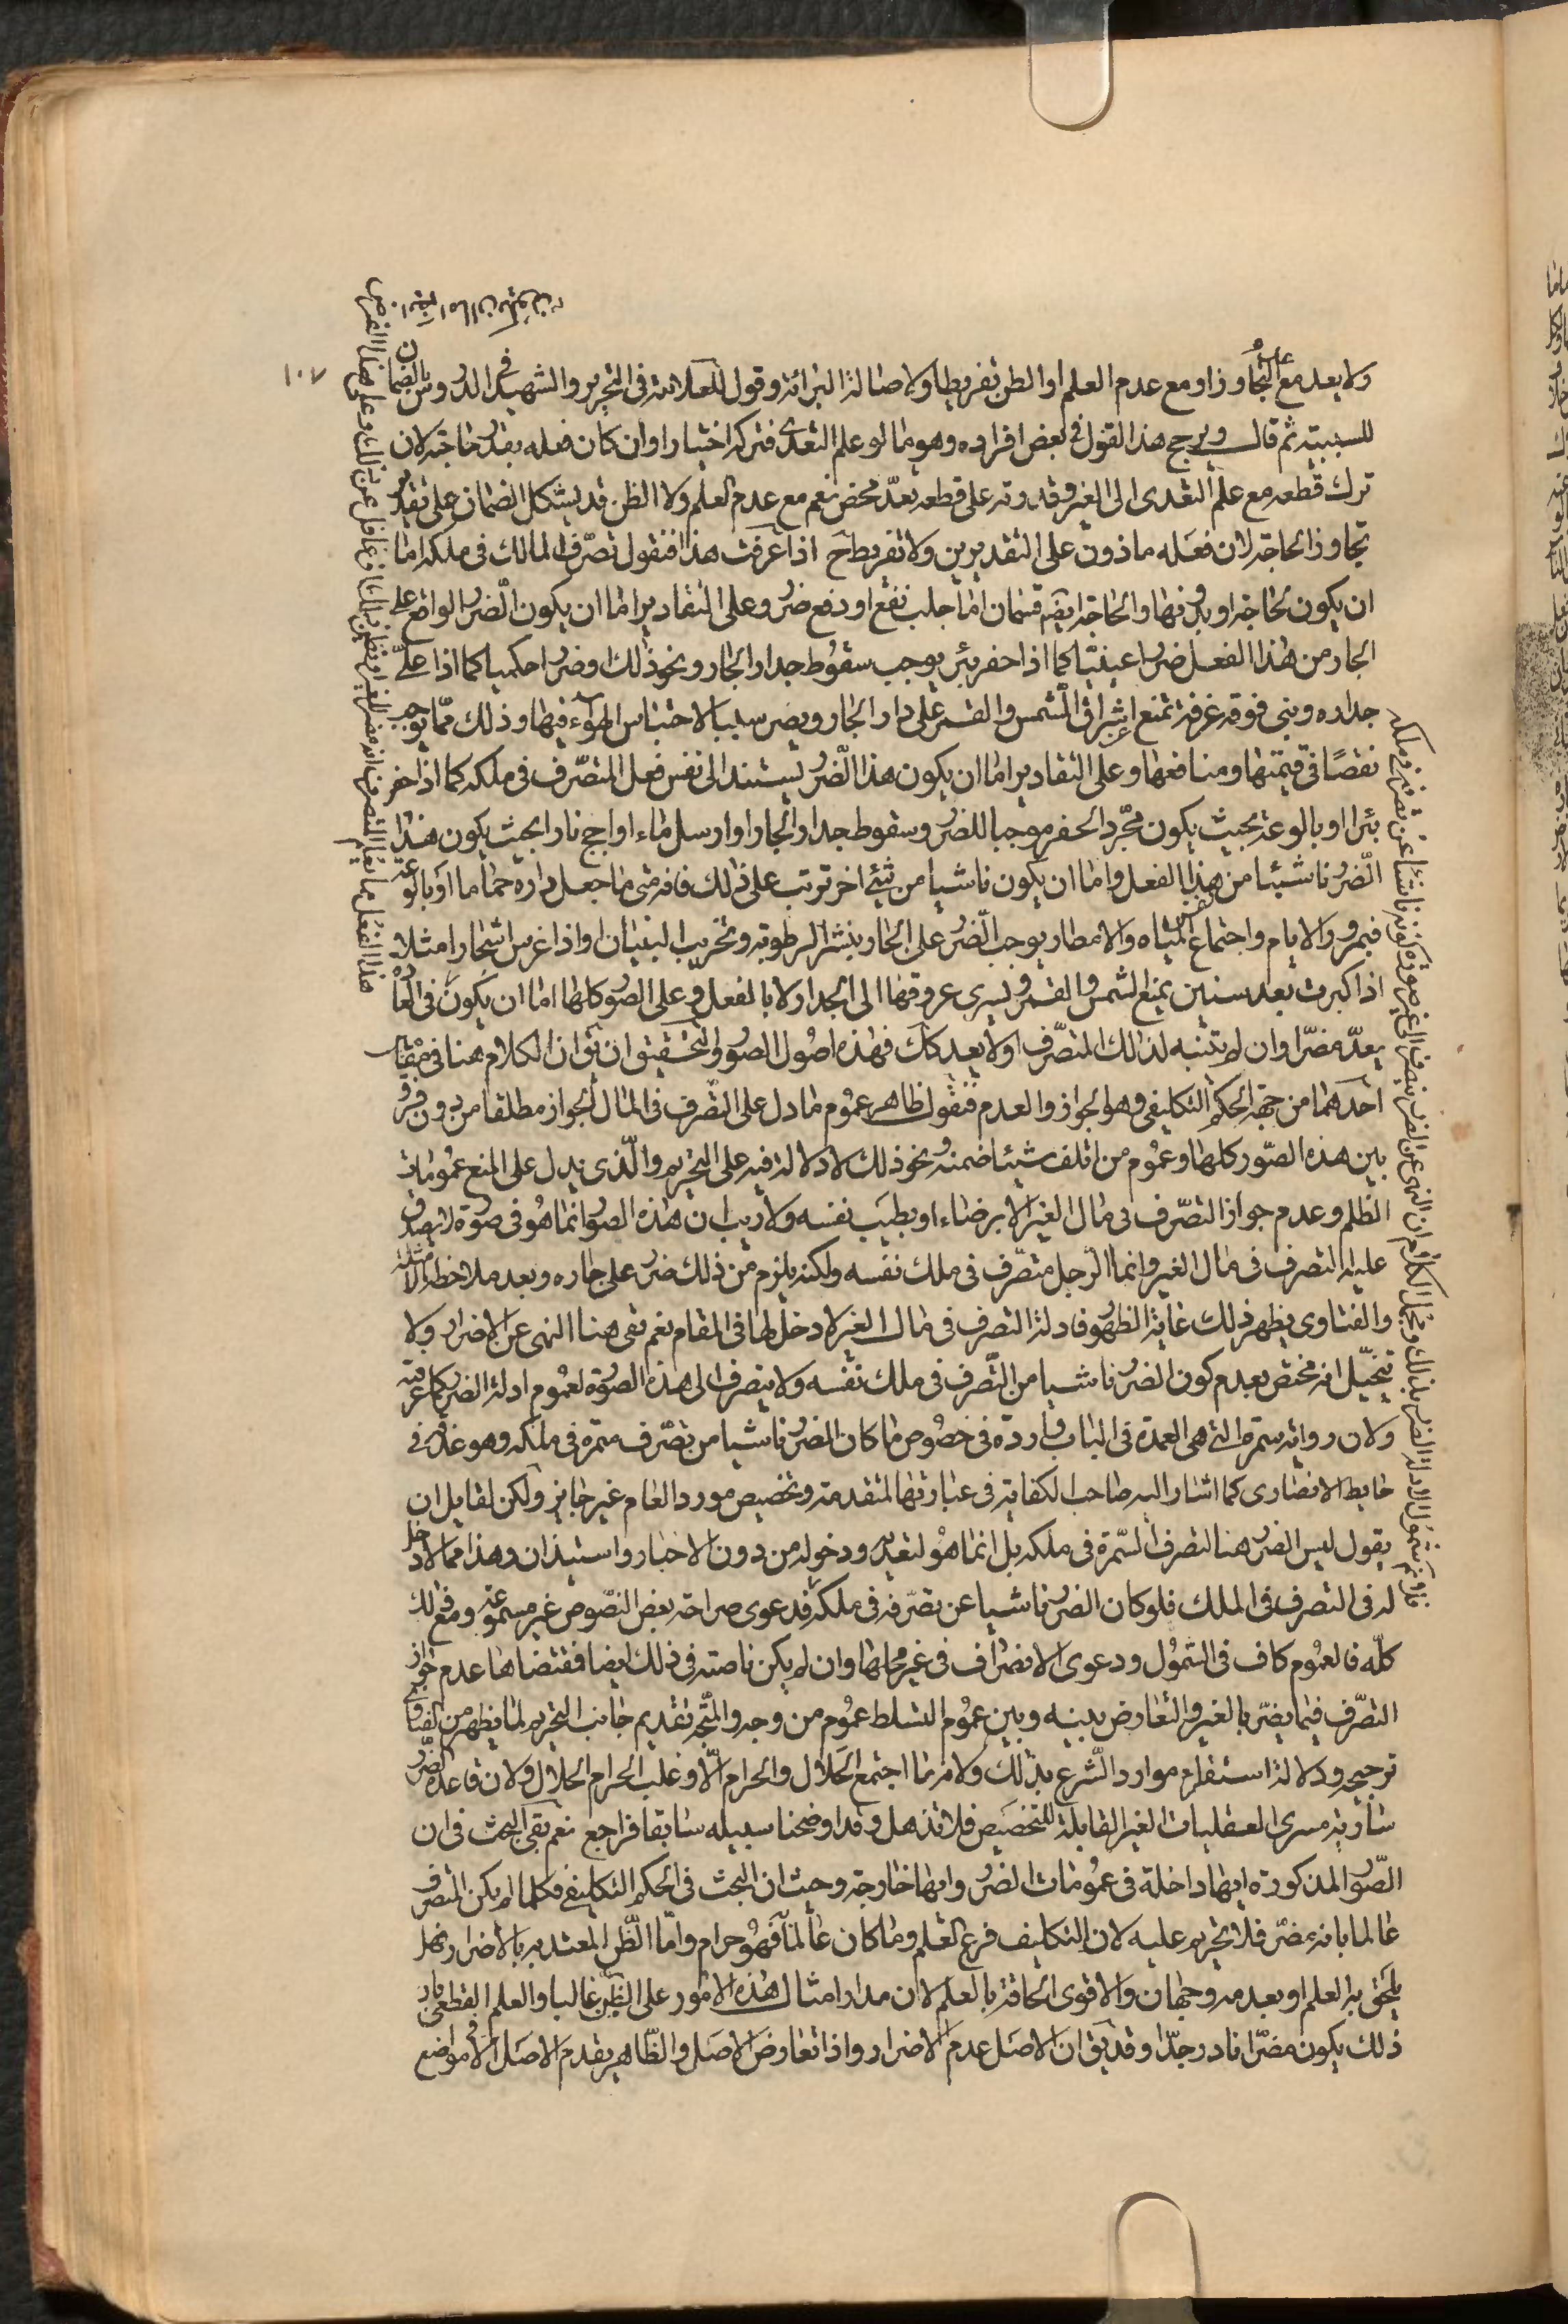 ١٠٧
ولا يعد مع التجاوز او مع عدم العلم او الظن تفريطا ولاصالة البرائة وقول للعلامة فى التحرير والشهيد فى الدروس بالضمان
للسببية ثم قال ويرجح هذا القول فى بعض افراده وهو ما لو علم التعدى فتركه اختيارا وان كان فعله بقدر حاجته لان
ترك قطعه مع علم التعدى الى الغير وقدرته على قطعه تعدّ محض نعم مع عدم العلم ولا الظن قد يشكل الضمان على تقدير
تجاوز الحاجة لان فعله ماذون على التقديرين ولا تفريط ح اذا عرفت هذا فنقول تصرّف المالك فى ملكه اما
ان يكون لحاجة او بدونها والحاجة ايضا قسمان اما جلب نفع او دفع ضرر وعلى التقادير اما ان يكون الضرر الواقع على
الجار من هذا الفعل ضررا عينيّا كما اذا حفر بئر يوجب سقوط جدار الجار ونحو ذلك او ضررا حكميا كما اذا علّى
جداره وبنى فوقه غرفة تمنع اشراق الشمس والقمر على دار الجار ويصر سببا لاحتباس الهواء فيها وذلك ممّا يوجب
نقصًا فى قيمتها ومنافعها وعلى التقادير اما ان يكون هذا الضّرر يستند الى نفس فعل المتصّرف فى ملكه كما اذا حفر
بئرا او بالوعة بحيث يكون مجّرد الحفر موجبا للضرر وسقوط جدار الجار او ارسل ماء او اجج نارا بحيث يكون هذا
الضّرر ناشيئا من هذا الفعل واما ان يكون ناشيا من شئ اخر ترتب على ذلك فانه متى ما جعل داره حماما او بالوعة
فبمرور الايام واجتماع المياه والامطار يوجب الضّرر على الجار بنشر الرطوبة وتخريب البنيان او اذا غرس اشجارا مثلا
اذا كبرت بعد سنين يمنع الشمس والقمر ويسرى عروقها الى الجدار لا بالفعل وعلى الصور كلها اما ان يكون فى العادة
يعدّ مضرّا وان لم يتنبه لذلك المتصّرف او لا يعد كك فهذه اصول الصور والتحقيق ان يق ان الكلام هنا فى مقامين
احدهما من جهة الحكم التكليفى وهو الجواز والعدم فنقول ظاهر عموم ما دل على التصّرف فى المال الجواز مطلقا من دون فرق
بين هذه الصّور كلها وعموم من اتلف شيئا ضمنه ونحو ذلك لا دلالة فيه على التحريم والّذى يدل على المنع عمومات
الظلم وعدم جواز التصّرف فى مال الغير الا برضاءه او بطيب نفسه ولا ريب ان هذه الصور انما هو فى صورة لا يصدق
عليه التصرف فى مال الغير وانما الرّجل متصّرف فى ملك نفسه ولكنه يلزم من ذلك ضرر على جاره وبعد ملاحظة الامثلة
والفتاوى يظهر ذلك غاية الظهور فادلة التصرف فى مال الغير لا دخل لها فى المقام نعم بقى هنا النهى عن الاضرار ولا
يتخيّل انه مختص بعدم كون الضرر ناشيا من التّصرف فى ملك نفسه ولا ينصرف الى هذه الصورة لعموم ادلة الضرر كما عرفته
ولان رواية سمرة التى هى العمدة فى الباب واردة فى خصوص ما كان الضرر ناشيا من تصّرف سمرة فى ملكه وهو عذقه فى
حايط الانصارى كما اشار اليه صاحب الكفاية فى عبارتها المتقدمة وتخصيص مورد العام غير جايز ولكن لقايل ان
يقول ليس الضرر هنا لتصرف السّمرة فى ملكه بل انما هو لتعديه ودخوله من دون الاخبار واستيذان وهذا مما لا دخل
له فى التصرف فى الملك فلو كان الضرر ناشيا عن تصّرفه فى ملكه فدعوى صراحة بعض النصّوص غير مسموعة ومع ذلك
كلّه فالعموم كاف فى الشمول ودعوى الانصراف فى غير محلها وان لم يكن ناصّة فى ذلك ايضا فمقتضاها عدم جواز
التصّرف فيما يضرّ بالغير والتعارض بينه وبين عموم التسلط عموم من وجه والمتّجه تقديم جانب التحريم لما يظهر من الفتاوى
ترجيحه ودلالة استقراء موارد الشّرع بذلك ولانه ما اجتمع الحلال والحرام الّا وغلب الحرام الحلال ولان قاعدة الضّرر
سارية مسرى العقليات الغير القابلة للتخصيص فلا تذهل وقد اوضحنا سبيله سابقا فراجع نعم بقى البحث فى ان
الصّور المذكورة ايها داخلة فى عمومات الضرر وايها خارجة وحيث ان البحث فى الحكم التكليفى فكلما لم يكن المتصرف
عالما بانه مضرّ فلا تحريم عليه لان التكليف فرع العلم وما كان عالما فهو حرام وامّا الظّن المعتد به بالاضرار فهل
يلحق بالعلم او بعدمه وجهان والاقوى الحاقه بالعلم لان مدار امثال هذه الامور على الظّن غالبا والعلم القطعى بان
ذلك يكون مضرّا نادر جدّا وقد يق ان الاصل عدم الاضرار واذا تعارض الاصل والظّاهر يقدم الاصل الا مواضع